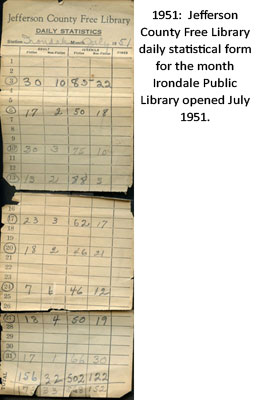 Jefferson County Free Library
DAILY STATISTICS
Station Irondale Month July 1951
ADULT JUVENILE
1
2
3 30 10 85 22
4
5
6 17 2 50 18
7
8
9
10 30 3 75 10
11
12
13 3
16
17 23 3 62 17
18
19
20 18 2 66 21
21
22
23
24 7 6 46 12
25
26
27 13 4 50 19
28
29
30
31 17 1 30
156 32 502 122
1951: Jefferson
County Free Library
daily statistical form
for the month
Irondale Public
Library opened July
1951.